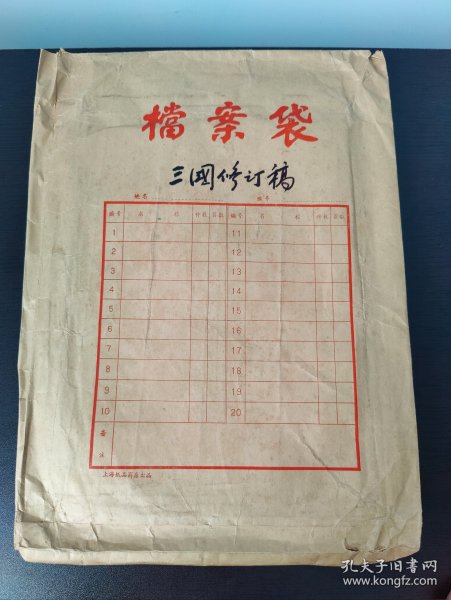 檔案袋
三國修订稿
姓名 編号
編号 名 称 件数 頁数 編号 名 称 件数 頁数
1 11
2 12
3 13
4 14
5 15
6 16
7 17
8 18
9 19
10 20
备注
孔夫子旧书网
www.kongfz.com